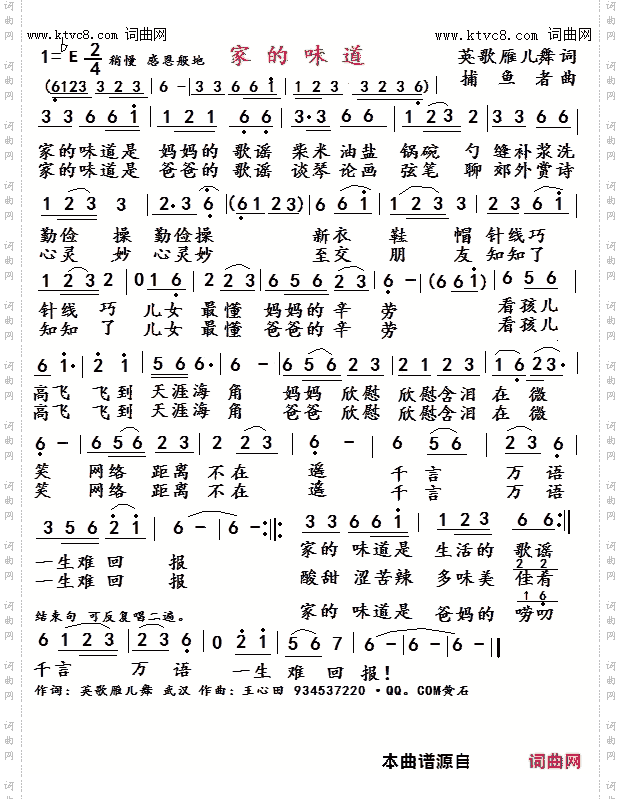 www.ktvc8.com 词曲网
www.ktvc8.com 词曲网
1=♭E 2/4 稍慢 感恩般地
家的味道
英歌雁儿舞词
捕鱼者曲
(6123 3 2 3 | 6 - | 3 3 6 6 1 | 1 2 3 | 3 2 3 6)
3 3 6 6 1 | 1 2 1 6·6 | 3·3 6 6 | 1 2 3 2 | 2 2 3 3
家的味道是 妈妈的 歌谣 柴米油盐 锅碗 勺 缝补浆洗
家的味道是 爸爸的 歌谣 谈琴论画 弦笔 聊 郊外赏诗
1 2 3 3 | 2·3 6 | (6 1 2 3) | 6 6 1 | 1 2 3 | 2 3 6 1
勤俭 操 勤俭操 新衣 鞋 帽 针线巧
心灵 妙 心灵妙 至交 朋 友 知知了
1 2 3 2 | 0 1 6 | 2 2 3 | 6 5 6 1 2 | 6 - | (6 6 1) | 6 5 6
针线 巧 儿女 最懂 妈妈的 辛 劳 看孩儿
知知 了 儿女 最懂 爸爸的 辛 劳 看孩儿
6 1· | 1 2 3 | 5 6 6 | 6 - | 6 5 6 2 3 | 2 1 2 3 | 1 6 2 3·
高飞 飞到 天涯海 角 妈妈 欣慰 欣慰含泪 在 微
高飞 飞到 天涯海 角 爸爸 欣慰 欣慰含泪 在 微
6 - | 6 5 6 2 3 | 2 2 3 | 6 - | 6 5 6 | 1 2 3 2 6
笑 网络 距离 不在 遥 千言 万语
笑 网络 距离 不在 遥 千言 万语
3 5 6 2 1 | 6 - | 6 - :|| 3 3 6 6 1 | 1 2 3 6 6 :||
一生难回 报 家的 味道是 生活的 歌谣
一生难回 报 酸甜 涩苦辣 多味美 佳肴
2 2
家的 味道是 爸妈的 唠叨
1 6
结束句 可反复唱二遍。
6 1 2 3 | 2 3 2 6 | 0 2 1 | 5 6 7 | 6 - | 6 - :||
千言 万语 一生 难 回报!
作词: 英歌雁儿舞 武汉 作曲: 王心田 934537220·QQ。COM黄石
本曲谱源自 词曲网